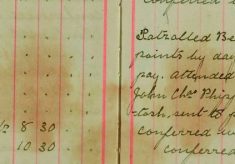 conferred
Patrolled Be
points by day
pay. Attended
John Chs. Phip
tosh, sent 18 f
½ 8 30 conferred
10 30 conferred